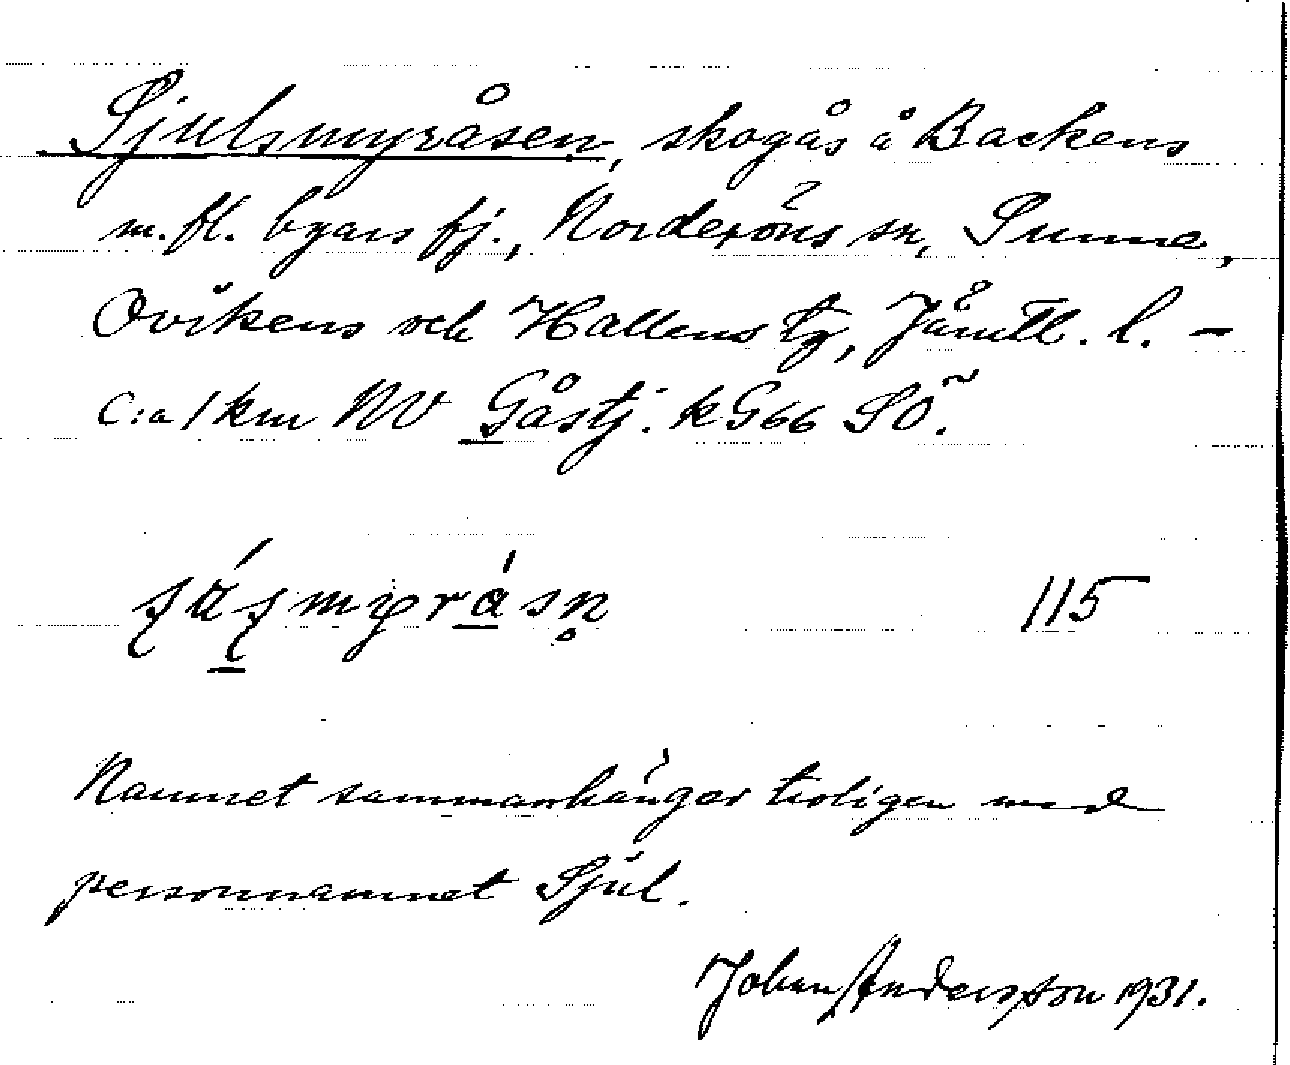 Sjulsmyråsen, skogås å Backens
m. fl. byars fj., Norderöns sn, Sunne,
Ovikens och Hallens tg, Jämtl. l. –
C:a 1 km NV Gåstj. k G66 SÖ.
115
Namnet sammanhänger troligen med
personnamnet Sjul.
Johan Andersson 1931.